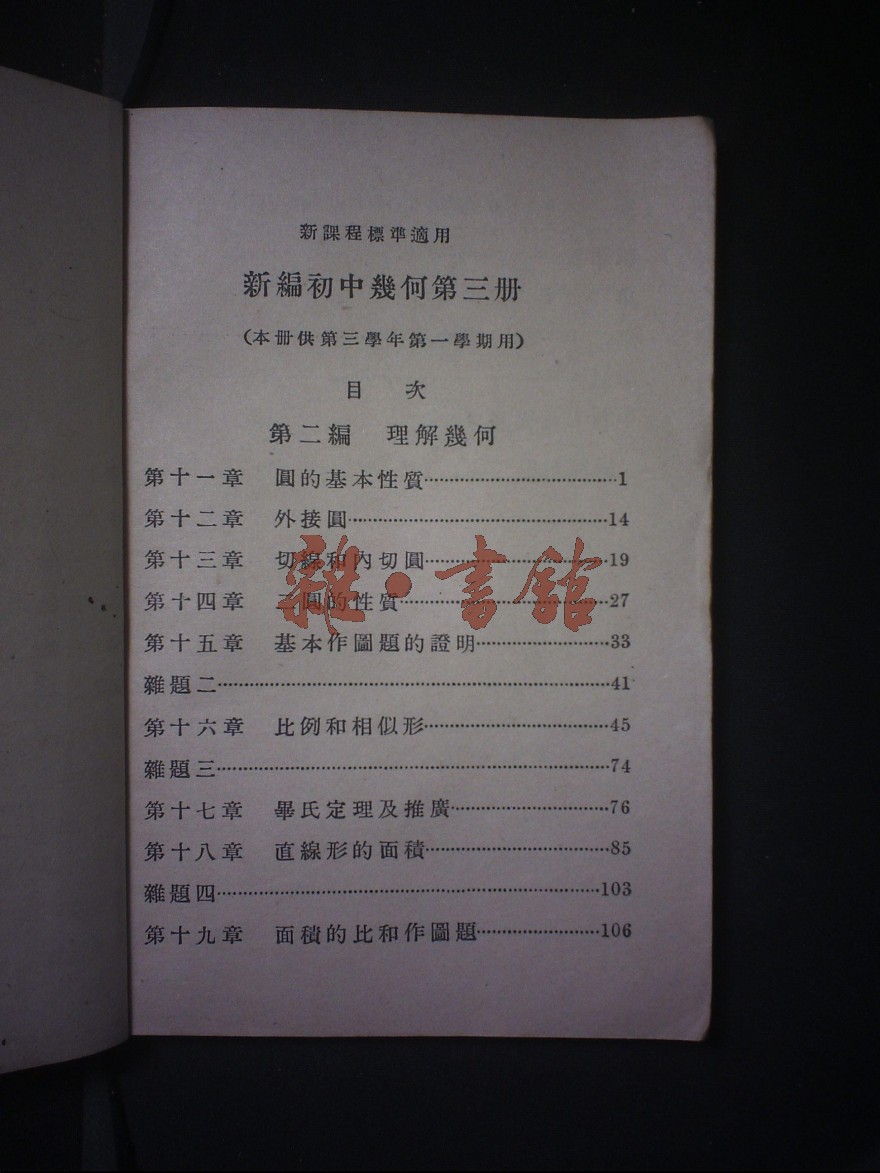 新課程標準適用
新編初中幾何第三册
(本册供第三學年第一學期用)
目 次
第二編 理解幾何
第十一章 圓的基本性質……1
第十二章 外接圓……14
第十三章 切線和內切圓……19
第十四章 二圓的性質……27
雜·書館
第十五章 基本作圖題的證明……33
雜題二……41
第十六章 比例和相似形……45
雜題三……74
第十七章 畢氏定理及推廣……76
第十八章 直線形的面積……85
雜題四……103
第十九章 面積的比和作圖題……106